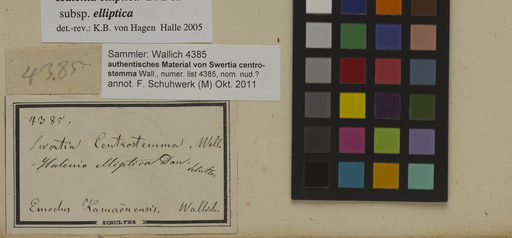 subsp. elliptica
det.-rev.: K.B. von Hagen Halle 2005
Sammler: Wallich 4385
authentisches Material von Swertia centro-
stemma Wall., numer. list 4385, nom. nud.?
annot. F. Schuhwerk (M) Okt. 2011
4385
4385.
Swertia Centrostemma. Wall.
Halenia elliptica Don.
Emodus. Kamaonensis. Wallich.
SCHULTES